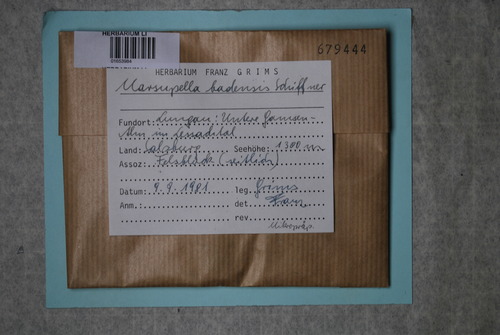 HERBARIUM LI
679444
HERBARIUM FRANZ GRIMS
Marsupella badensis Schiffner
Fundort: Lungau: Untere
Land: Salzburg Seehöhe: 1300 m
Assoz: Felsblöcke (seitlich)
Datum: 9.9.1981 leg. Grims
Anm. det Franz
rev
Mikropräp.